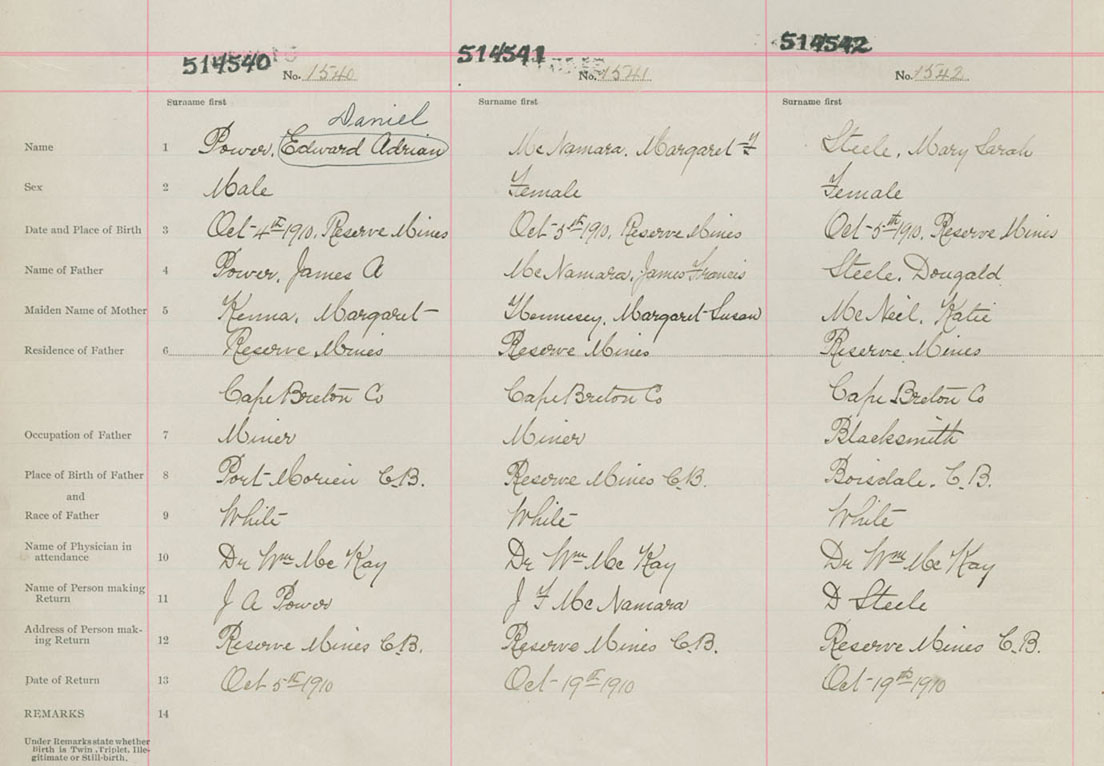 514540 514541 514542
No. 1540 No. 1541 No. 1542
Surname first Surname first Surname first
Daniel
Name 1 Power, Edward Adrian McNamara, Margaret Steele, Mary Sarah
Sex 2 Male Female Female
Date and Place of Birth 3 Oct-4th 1910, Reserve Mines Oct-5th 1910, Reserve Mines Oct-5th 1910, Reserve Mines
Name of Father 4 Power, James A McNamara, James Francis Steele, Dougald
Maiden Name of Mother 5 Kenna, Margaret Hennesey, Margaret Susan McNeil, Katie
Residence of Father 6 Reserve Mines Reserve Mines Reserve Mines
Cape Breton Co Cape Breton Co Cape Breton Co
Occupation of Father 7 Miner Miner Blacksmith
Place of Birth of Father 8 Port Morien C.B. Reserve Mines C.B. Boisdale, C.B.
and
Race of Father 9 White White White
Name of Physician in
attendance 10 Dr Wm McKay Dr Wm McKay Dr Wm McKay
Name of Person making
Return 11 J A Power J F McNamara D Steele
Address of Person mak-
ing Return 12 Reserve Mines C.B. Reserve Mines C.B. Reserve Mines C.B.
Date of Return 13 Oct-5th 1910 Oct-19th 1910 Oct-19th 1910
REMARKS 14
Under Remarks state whether
Birth is Twin, Triplet, Ille-
gitimate or Still-birth.